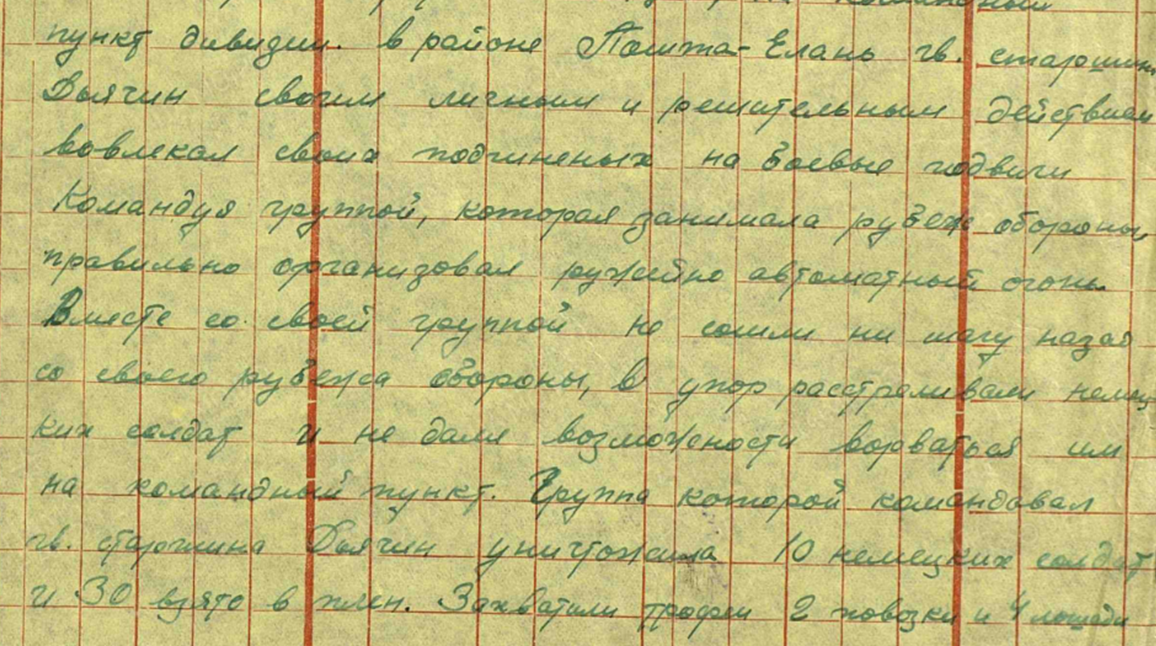 командный
пункт дивизии. в районе Елань гв. старшина
Дьячин своим личным и решительным действием
вовлекал своих подчиненых на боевые подвиги
Командуя группой, которая занимала рубеж обороны
правильно организовал ружейно автоматный огонь
Вместе со своей группой не сошли ни шагу назад
со своего рубежа обороны, в упор расстреливали немец
ких солдат и не дали возможности ворваться им
на командный пункт. Группа которой командовал
гв. старшина Дьячин уничтожила 10 немецких солдат
и 30 взято в плен. Захватили трофеи 2 повозки и 4 лошади